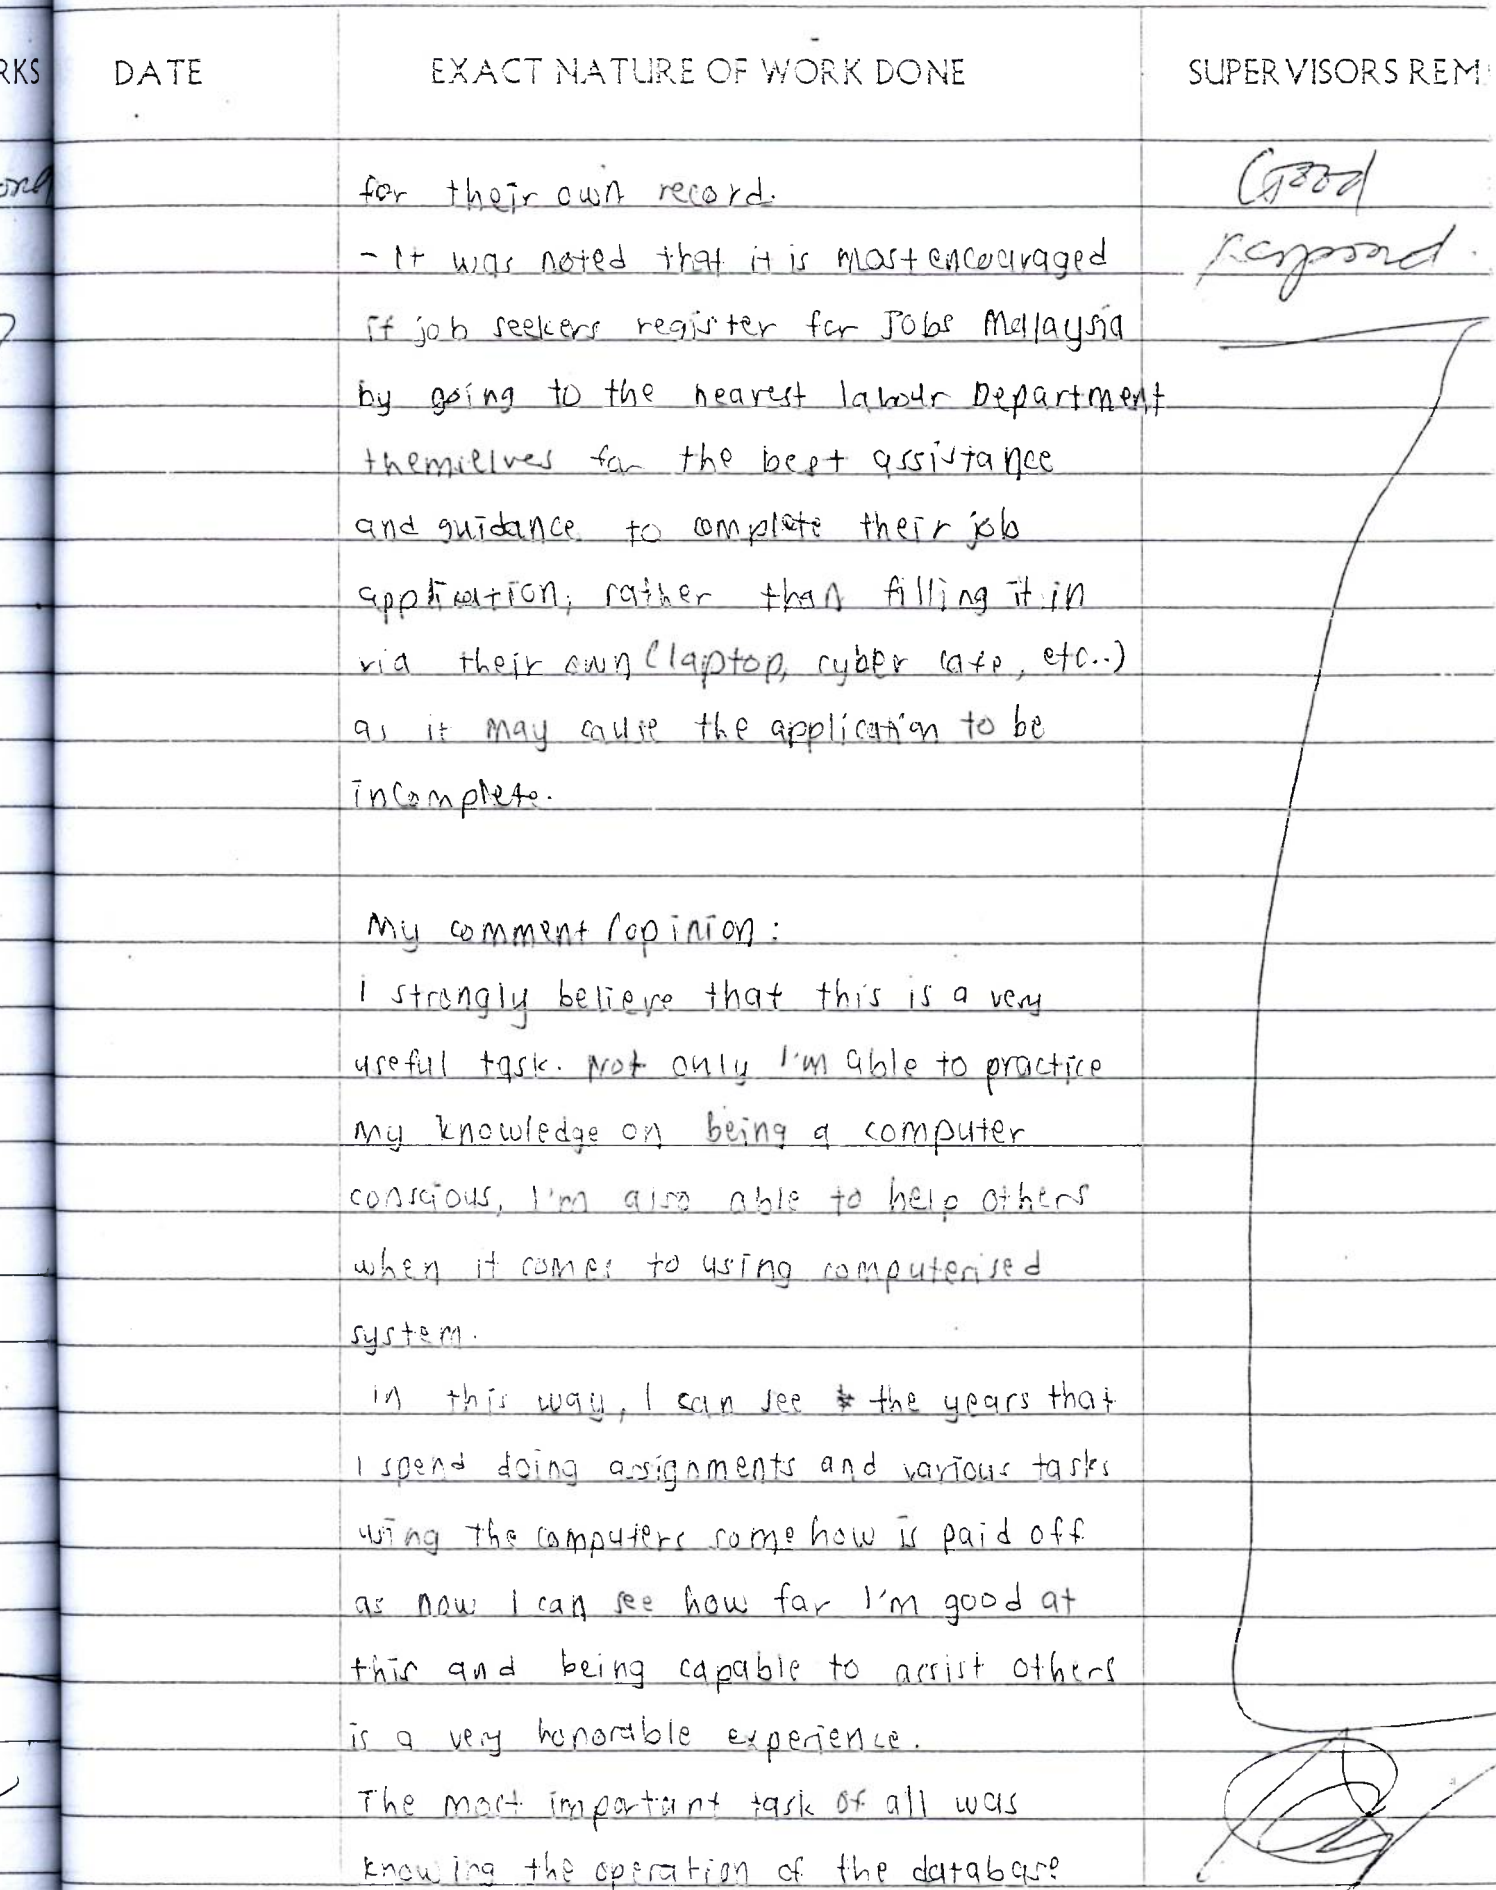 RKS DATE EXACT NATURE OF WORK DONE SUPERVISORS REM
for their own record.
Good
- It was noted that it is most encouraged
Respond.
if job seekers register for Jobs Malaysia
by going to the nearest labour Department
themselves for the best assistance
and guidance to complete their job
application, rather than filling it in
via their own (laptop, cyber cafe, etc..)
as it may cause the application to be
incomplete.
My comment/opinion:
I strongly believe that this is a very
useful task. Not only I'm able to practice
my knowledge on being a computer
conscious, I'm also able to help others
when it comes to using computerised
system.
in this way, I can see the years that
I spend doing assignments and various tasks
using the computers somehow is paid off
as now I can see how far I'm good at
this and being capable to assist others
is a very honorable experience.
The most important task of all was
knowing the operation of the database